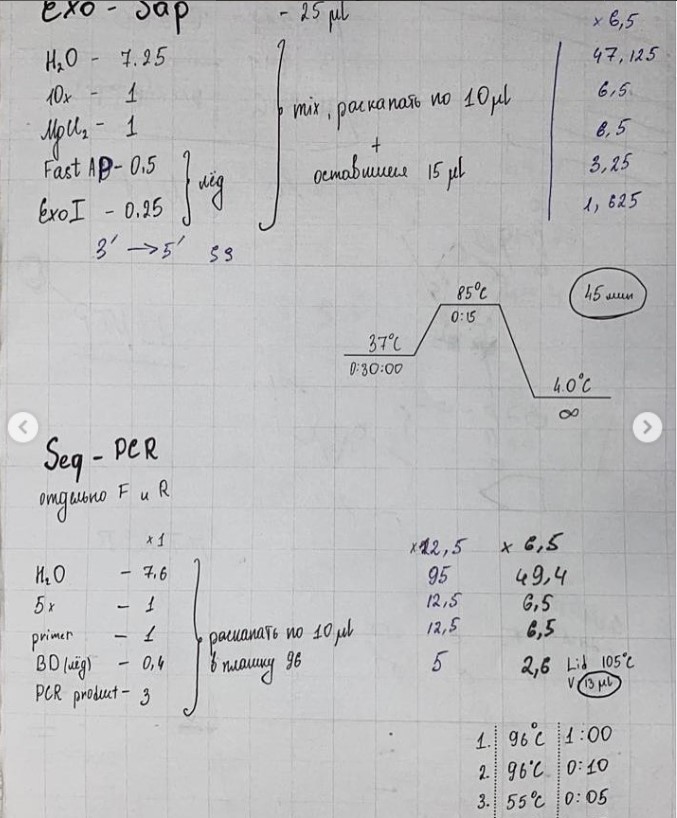 Exo - Sap - 25 µl
× 6,5
H₂O - 7.25 47,125
10x - 1 6,5
MgCl₂ - 1 mix, раскапать по 10 µl 6,5
+
Fast AP - 0.5 лёд оставшиеся 15 µl 3,25
ExoI - 0.25 1,625
3' → 5' ss
85°C 45 мин
0:15
37°C
0:30:00
4.0°C
∞
Seq - PCR
отдельно F и R
×1 ×12,5 × 6,5
H₂O - 7,6 95 49,4
5x - 1 12,5 6,5
primer - 1 раскапать по 10 µl 12,5 6,5
BD (лёд) - 0,4 в плашку 96 5 2,6 Lid 105°C
V 13 µl
PCR product - 3
1. 96°C 1:00
2. 96°C 0:10
3. 55°C 0:05